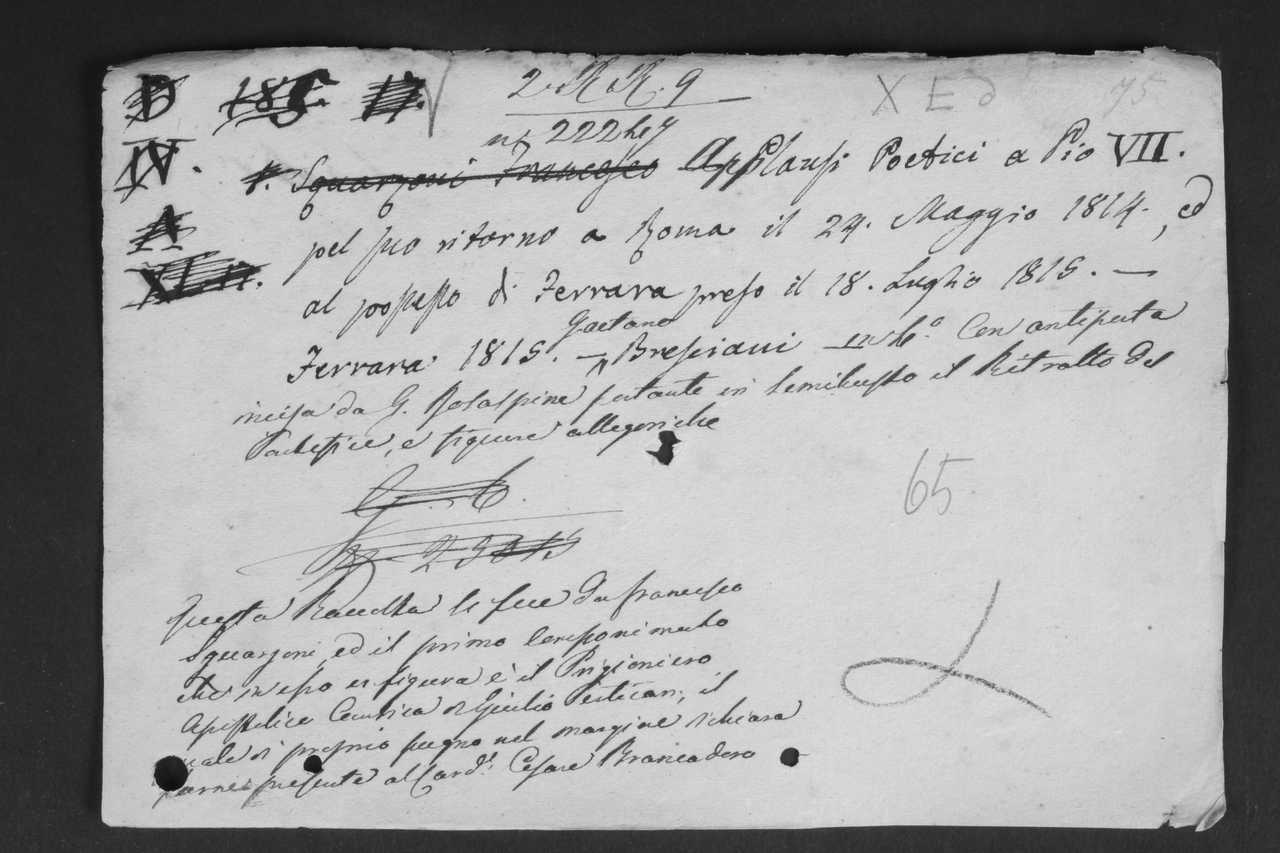 D 185 D. V 2. R R. 9 X E d 75
IV. n. 222 h. 7
Squarzoni Francesco Applausi Poetici a Pio VII.
A pel suo ritorno a Roma il 24. Maggio 1814., ed
al possesso di Ferrara preso il 18. Luglio 1815. —
Gaetano
Ferrara 1815. — Bresciani in 6.º Con antiporta
incisa da G. Rosaspina portante in semibusto il Ritratto del
Pontefice, e figure allegoriche
65
G. C.
Questa Raccolta si fece da Francesco
Squarzoni, ed il primo Componimento
che in esso si figura è il Prigioniero
Apostolico Cantica di Giulio Perticari, il
quale di proprio pugno nel margine dichiara
farne presente al Card.l Cesare Brancadoro